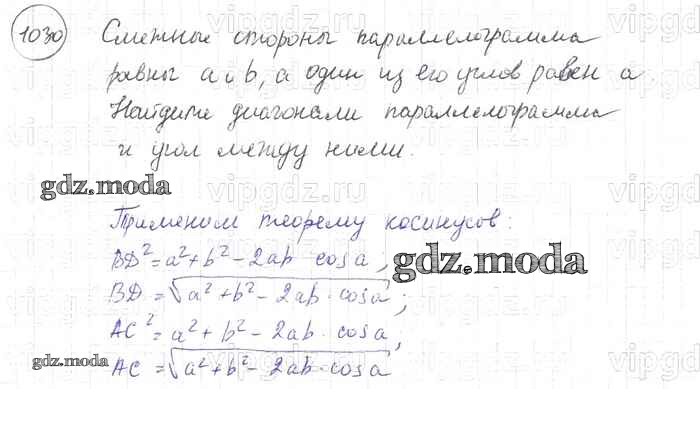 1030 Смежные стороны параллелограмма
равны a и b, а один из его углов равен a.
Найдите диагонали параллелограмма
и угол между ними.
gdz.moda
Применим теорему косинусов:
BD² = a² + b² - 2ab · cos a,
gdz.moda
BD = √a² + b² - 2ab · cos a;
AC² = a² + b² - 2ab · cos a,
gdz.moda
AC = √a² + b² - 2ab · cos a